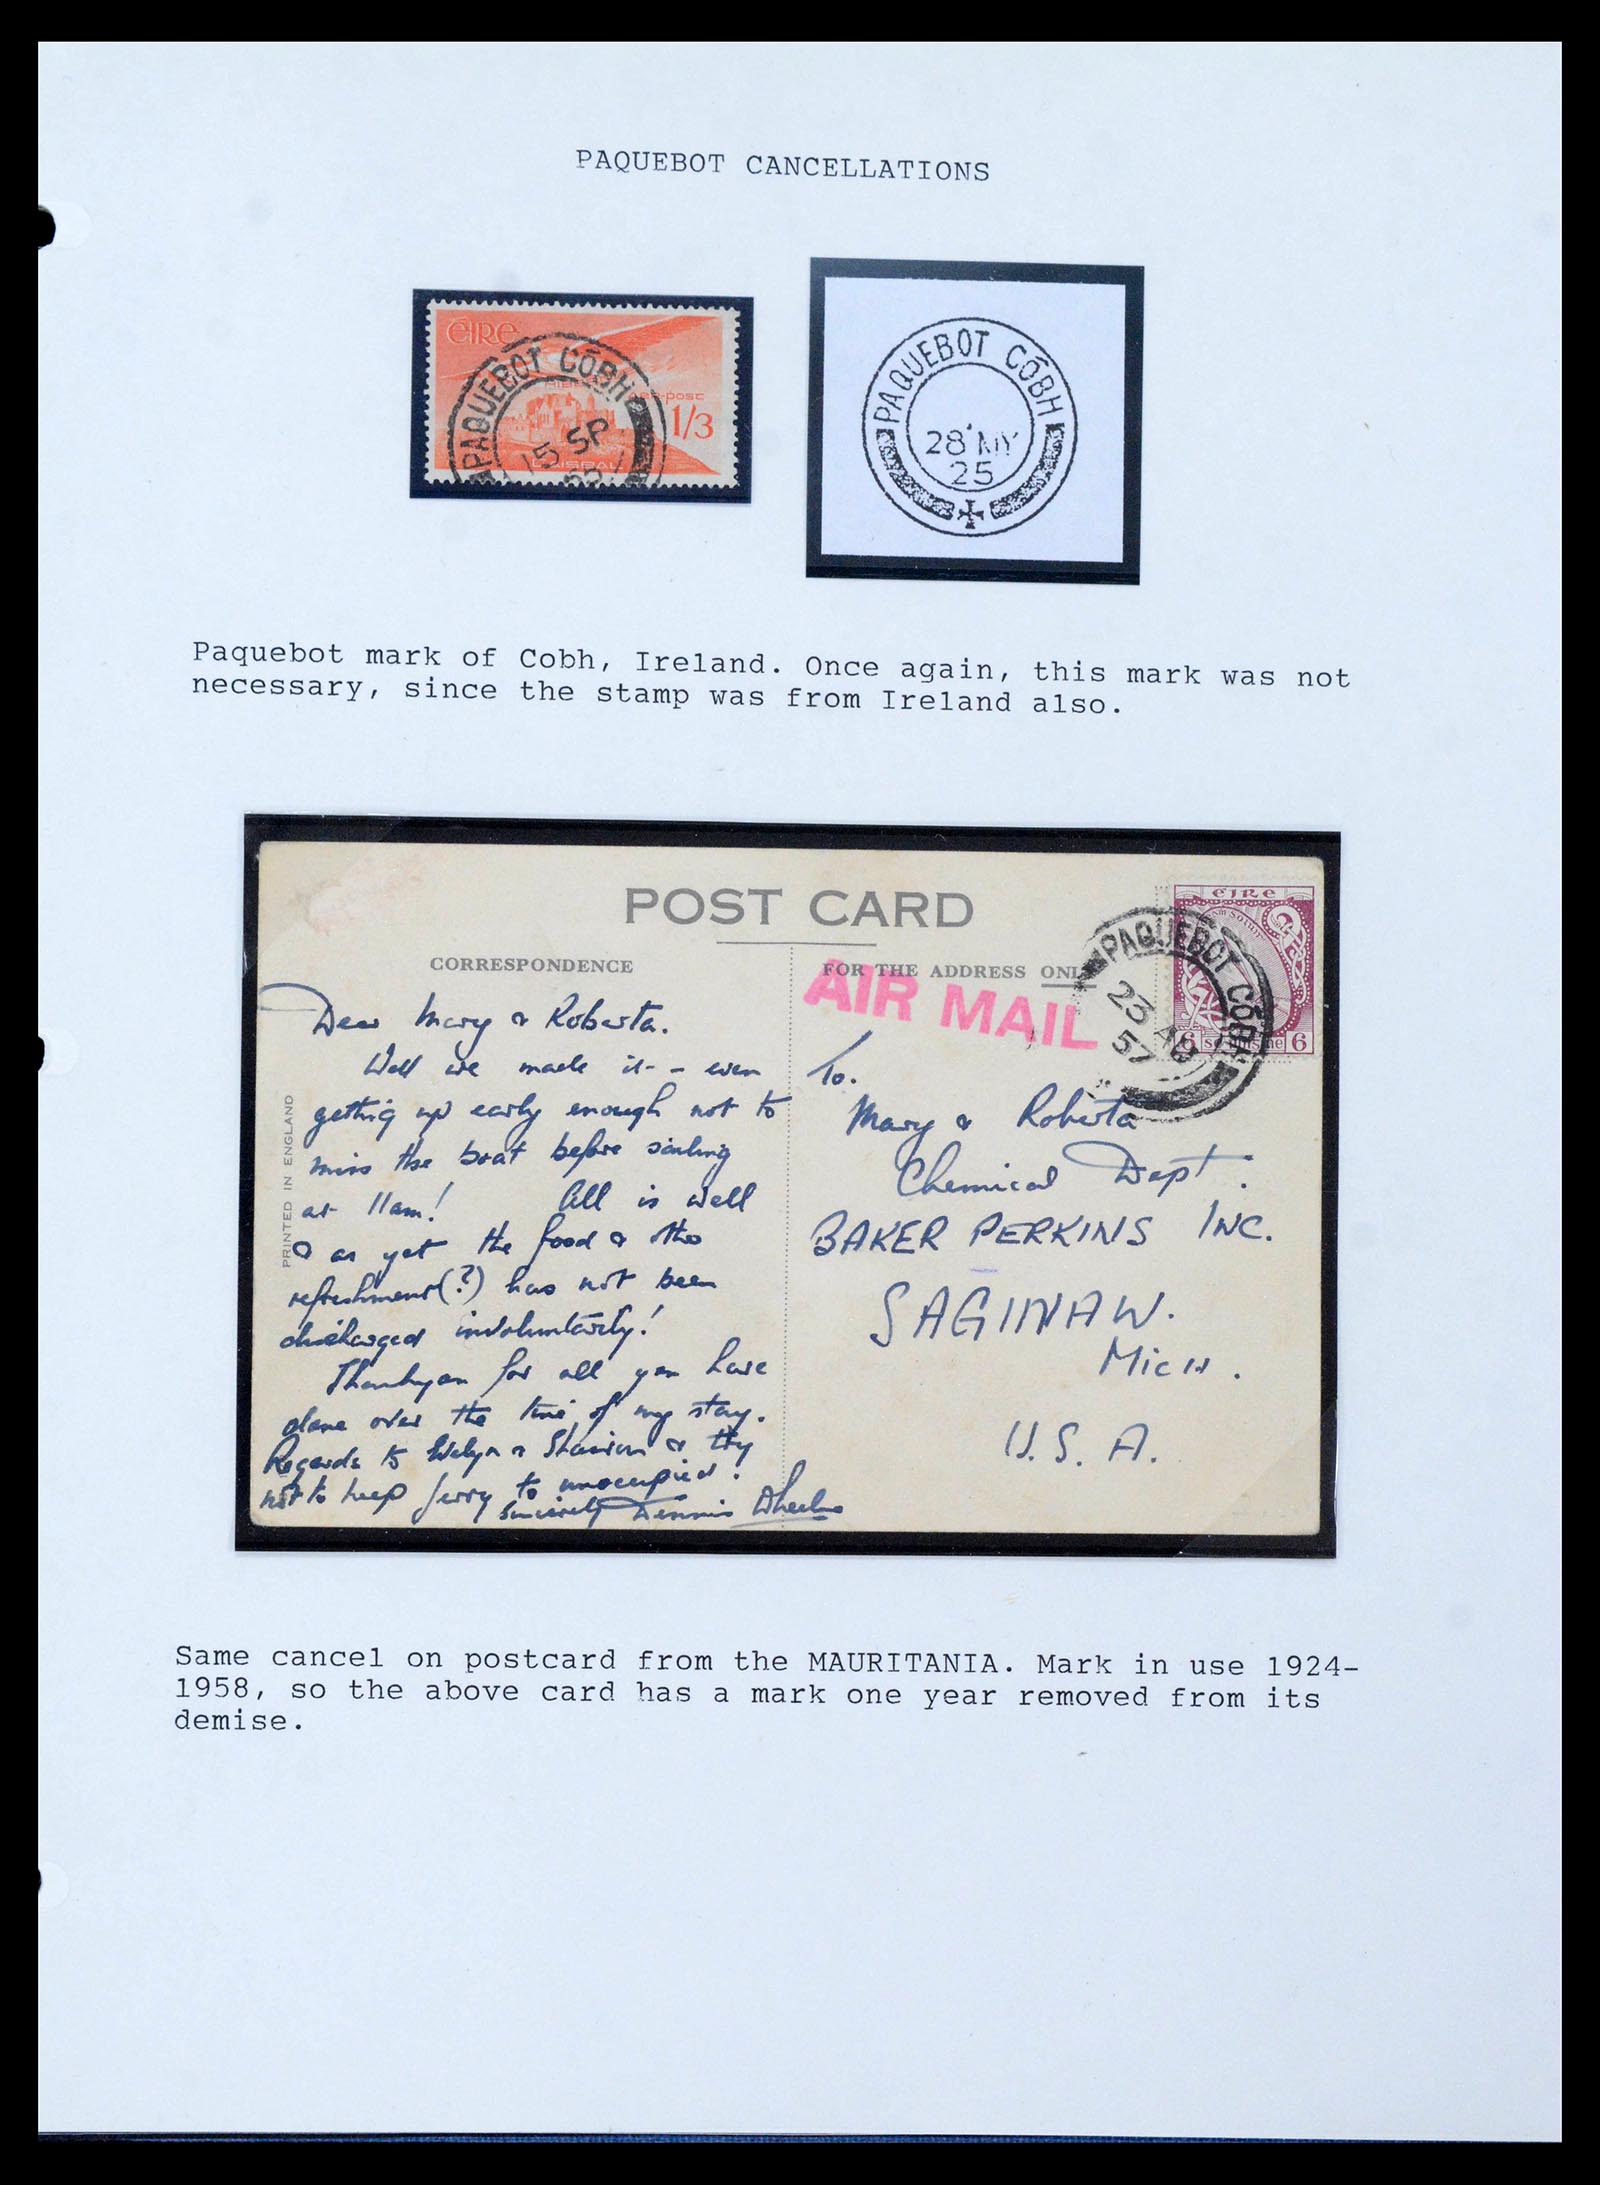 PAQUEBOT CANCELLATIONS
ÉIRE
AER-POST
1/3
PAQUEBOT CÓBH
15 SP
PAQUEBOT CÓBH
28 MY
25
Paquebot mark of Cobh, Ireland. Once again, this mark was not
necessary, since the stamp was from Ireland also.
POST CARD
CORRESPONDENCE
FOR THE ADDRESS ONLY
AIR MAIL
éire
6 6
PAQUEBOT CÓBH
23 AU
57
PRINTED IN ENGLAND
Dear Mary & Roberta.
Well we made it - - even
getting up early enough not to
miss the boat before sailing
at 11am! All is well
& as yet the food & other
refreshment(?) has not been
discharged involuntarily!
Thankyou for all you have
done over the time of my stay.
Regards to Evelyn & & try
not to keep Jerry to unoccupied.
Sincerely Dennis Wheeler
To.
Mary & Roberta
Chemical Dept.
BAKER PERKINS INC.
SAGINAW.
MICH.
U.S.A.
Same cancel on postcard from the MAURITANIA. Mark in use 1924-
1958, so the above card has a mark one year removed from its
demise.